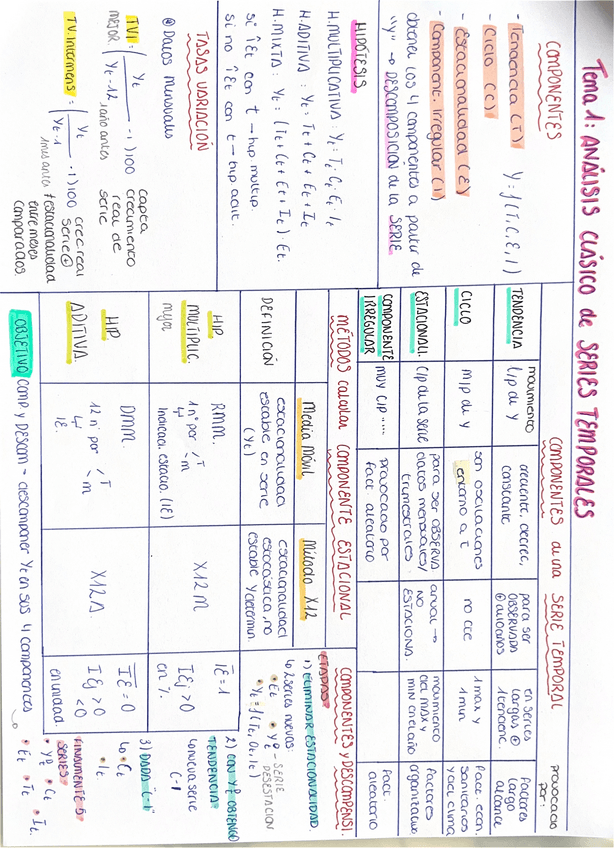 Tema 1: ANÁLISIS CLÁSICO de SERIES TEMPORALES
COMPONENTES
- Tendencia (T)
- Ciclo (C)
- Estacionalidad (E)
- Component. Irregular (I)
Y = f (T, C, E, I)
obtener los 4 componentes a partir de
"y" → DESCOMPOSICION de la SERIE
HIPÓTESIS
H. MULTIPLICATIVA: Yt = Tt · Ct · Et · It
H. ADITIVA: Yt = Tt + Ct + Et + It
H. MIXTA: Yt = (Tt + Ct + Et + It) · Et
si ↑Et con t → hip multip.
si no ↑Et con t → hip adit.
TASAS VARIACIÓN
Datos mensuales
TV1 = (Yt / Yt-12 - 1) 100
MEJOR
1 año antes
capta
crecimiento
real de
serie
TV. Intermens = (Yt / Yt-1 - 1) 100
1 mes antes
crec. real
serie
+ estacionalidad
entre meses
comparados
COMPONENTES de una SERIE TEMPORAL
provocado
por:
TENDENCIA
movimiento
l/p de y
creciente, decrec,
constante
para ser
OBSERVADA
en series
largas
1 término
Factores
largo
alcance
CICLO
m/p de y
son oscilaciones
entorno a t
no cte
1 max y
1 min
Fact. econ.
sanitarios
y del clima
ESTACIONALI.
c/p de la serie
para ser OBSERVA
datos mensuales/
trimestrales
anual →
no
ESTACIONA.
movimiento
del MAX y
MIN en el año
Factores
organizativos
COMPONENTE
IRREGULAR
muy c/p ....
provocado por
fact. aleatorio
Fact.
aleatorio
MÉTODOS calcular COMPONENTE ESTACIONAL
Media Móvil
Método X12
DEFINICIÓN
estacionalidad
estable en serie
(Yt)
estacionalidad
estocástica, no
estable y determin.
HIP.
MULTIPLIC.
mejor
RMM.
1 nº por T
m
Indicad. estacio. (IE)
X12M
IE = 1
IEj > 0
en %.
HIP
ADITIVA.
DMM.
12 nº por T
m
IE.
X12A.
IE = 0
IEj > 0
< 0
en unidad
COMPONENTES y DESCOMPENSI.
ETAPAS
1) ELIMINAR ESTACIONALIDAD
2 series nuevas:
• Et • Yt - SERIE
DESESTACION
2) CON Yt OBTENGO
TENDENCIA
nueva serie
3) DADA
• Ct
• It
FINALMENTE 5
SERIES
• Yt • Ct
• Et • Tt • It
OBJETIVO comp y DESCOM → descomponer Yt en sus 4 componentes